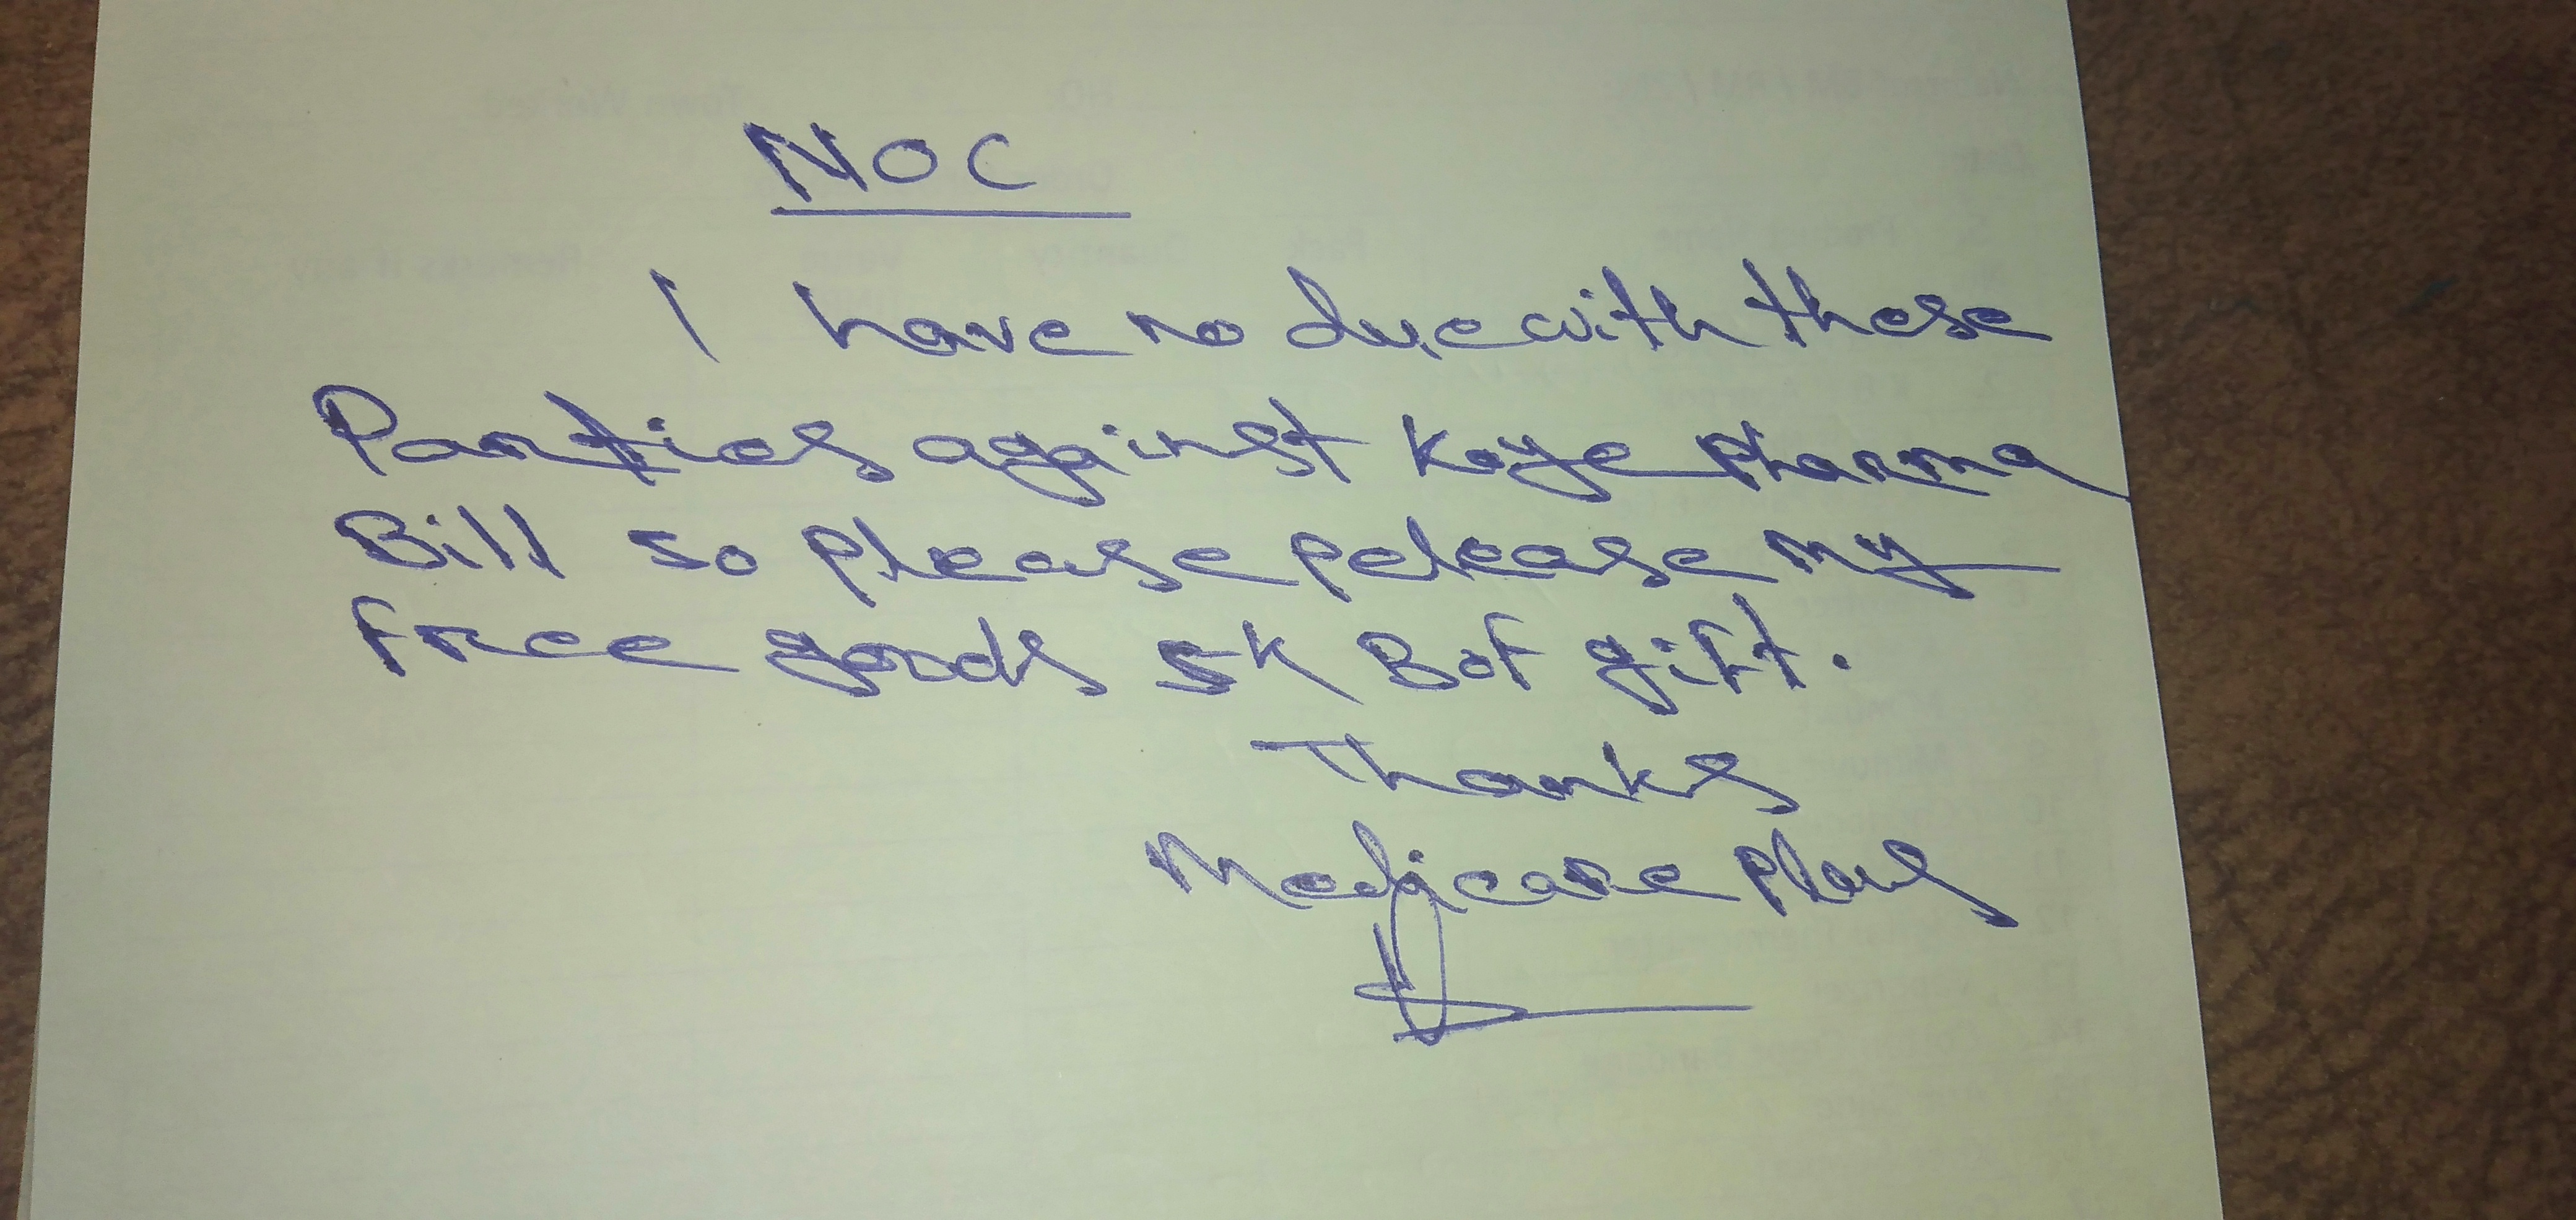 NOC
I have no due with these
Parties against Kaye Pharma
Bill so please pelease my
free goods 5K Bof gift.
Thanks
Medicare plus